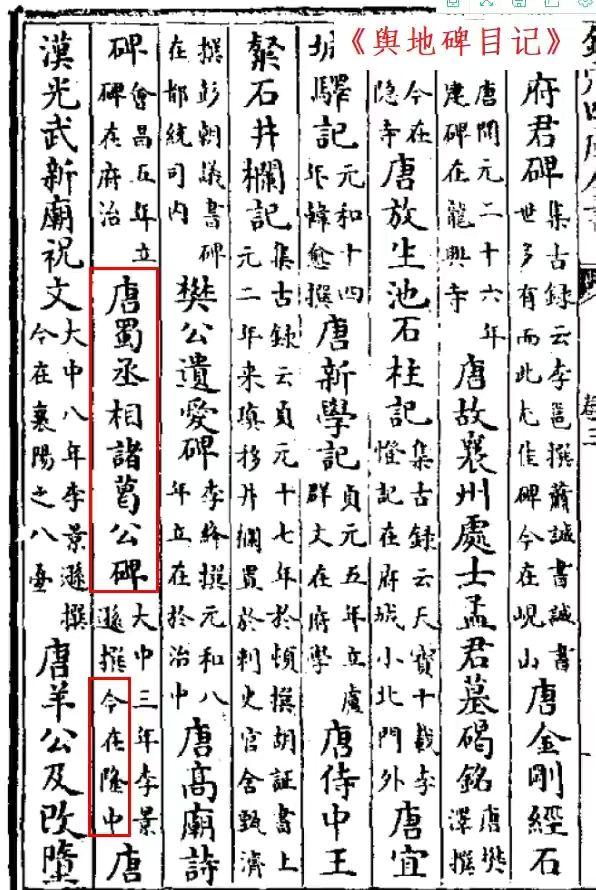 《舆地碑目记》
府君碑集古錄云李邕撰蕭誠書誠書世多有而此尤佳碑今在峴山唐金剛經石
唐開元二十六年建碑在龍興寺唐故襄州處士孟君墓碣銘唐樊澤撰
今在隐寺唐放生池石柱記集古錄云天寶十載李燈記在府城小北門外唐宜
城驛記元和十四年韓愈撰唐新學記貞元五年立盧群文在府學唐侍中王
粲石井欄記集古錄云貞元十七年於頔撰胡証書上元二年來瑱移井欄置於刺史官舍甄濟
撰彭朝議書碑在都統司内樊公遺愛碑李絳撰元和八年立在於治中唐高廟詩
碑會昌五年立碑在府治唐蜀丞相諸葛公碑大中三年李景遜撰今在隆中唐
漢光武新廟祝文大中八年李景遜撰今在襄陽之八唐羊公及改墮